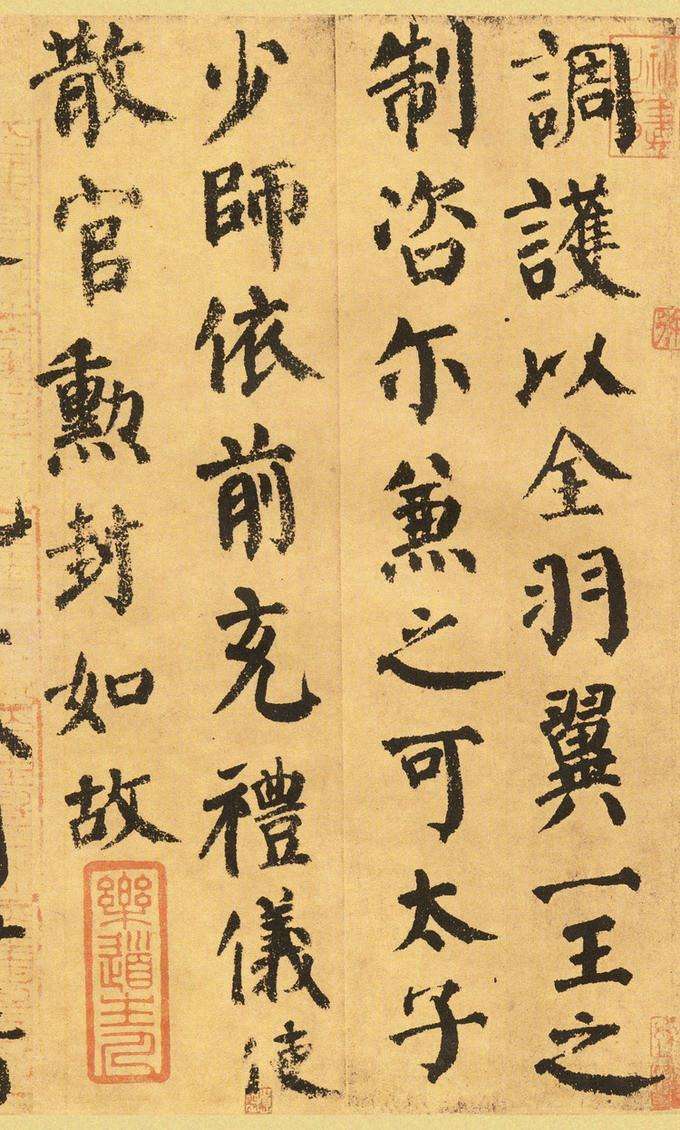 調護以全羽翼一王之
制咨尔兼之可太子
少師依前充禮儀使
散官勳封如故
樂道主人